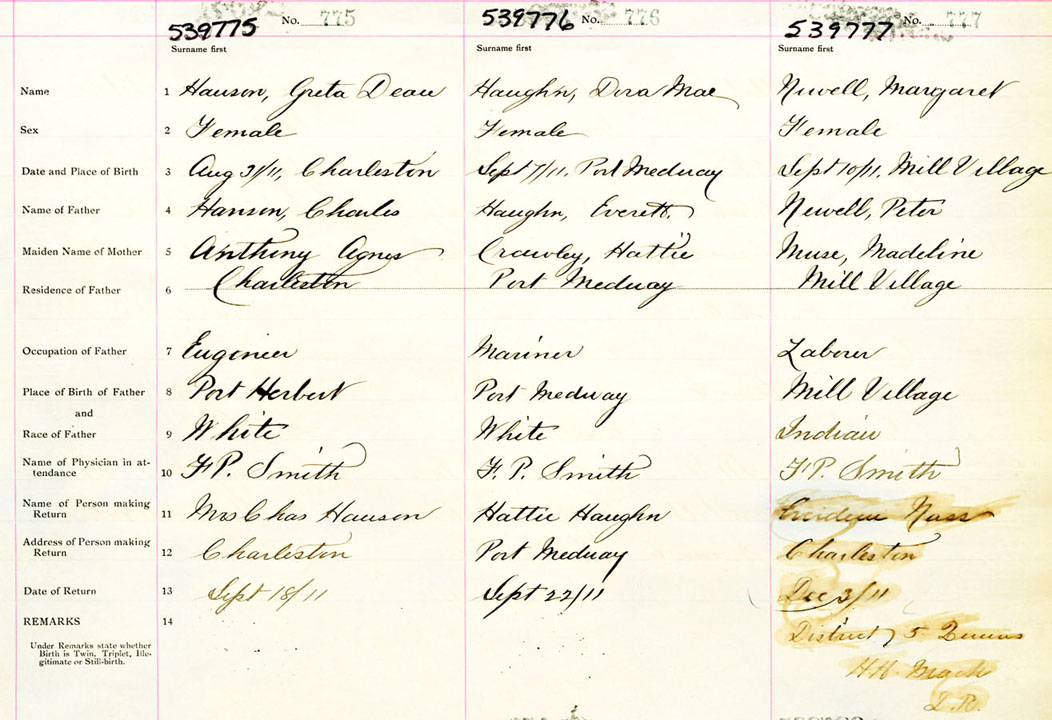 539775 No. 775 539776 No. 776 539777 No. 777
Surname first Surname first Surname first
Name 1 Hanson, Greta Dean Haughn, Dora Mae Newell, Margaret
Sex 2 Female Female Female
Date and Place of Birth 3 Aug 31/11, Charleston Sept 7/11, Port Medway Sept 10/11, Mill Village
Name of Father 4 Hanson, Charles Haughn, Everett. Newell, Peter
Maiden Name of Mother 5 Anthony Agnes Crawley, Hattie Muse, Madeline
Residence of Father 6 Charleston Port Medway Mill Village
Occupation of Father 7 Engineer Mariner Laborer
Place of Birth of Father 8 Port Herbert Port Medway Mill Village
and
Race of Father 9 White White Indian
Name of Physician in at-
tendance 10 F.P. Smith F. P. Smith F.P. Smith
Name of Person making
Return 11 Mrs Chas Hanson Hattie Haughn
Address of Person making
Return 12 Charleston Port Medway Charleston
Date of Return 13 Sept 18/11 Sept 22/11 Dec 3/11
REMARKS 14
District 5 Queens
Under Remarks state whether
Birth is Twin, Triplet, Ille-
gitimate or Still-birth.
H.H. Mack
D.R.